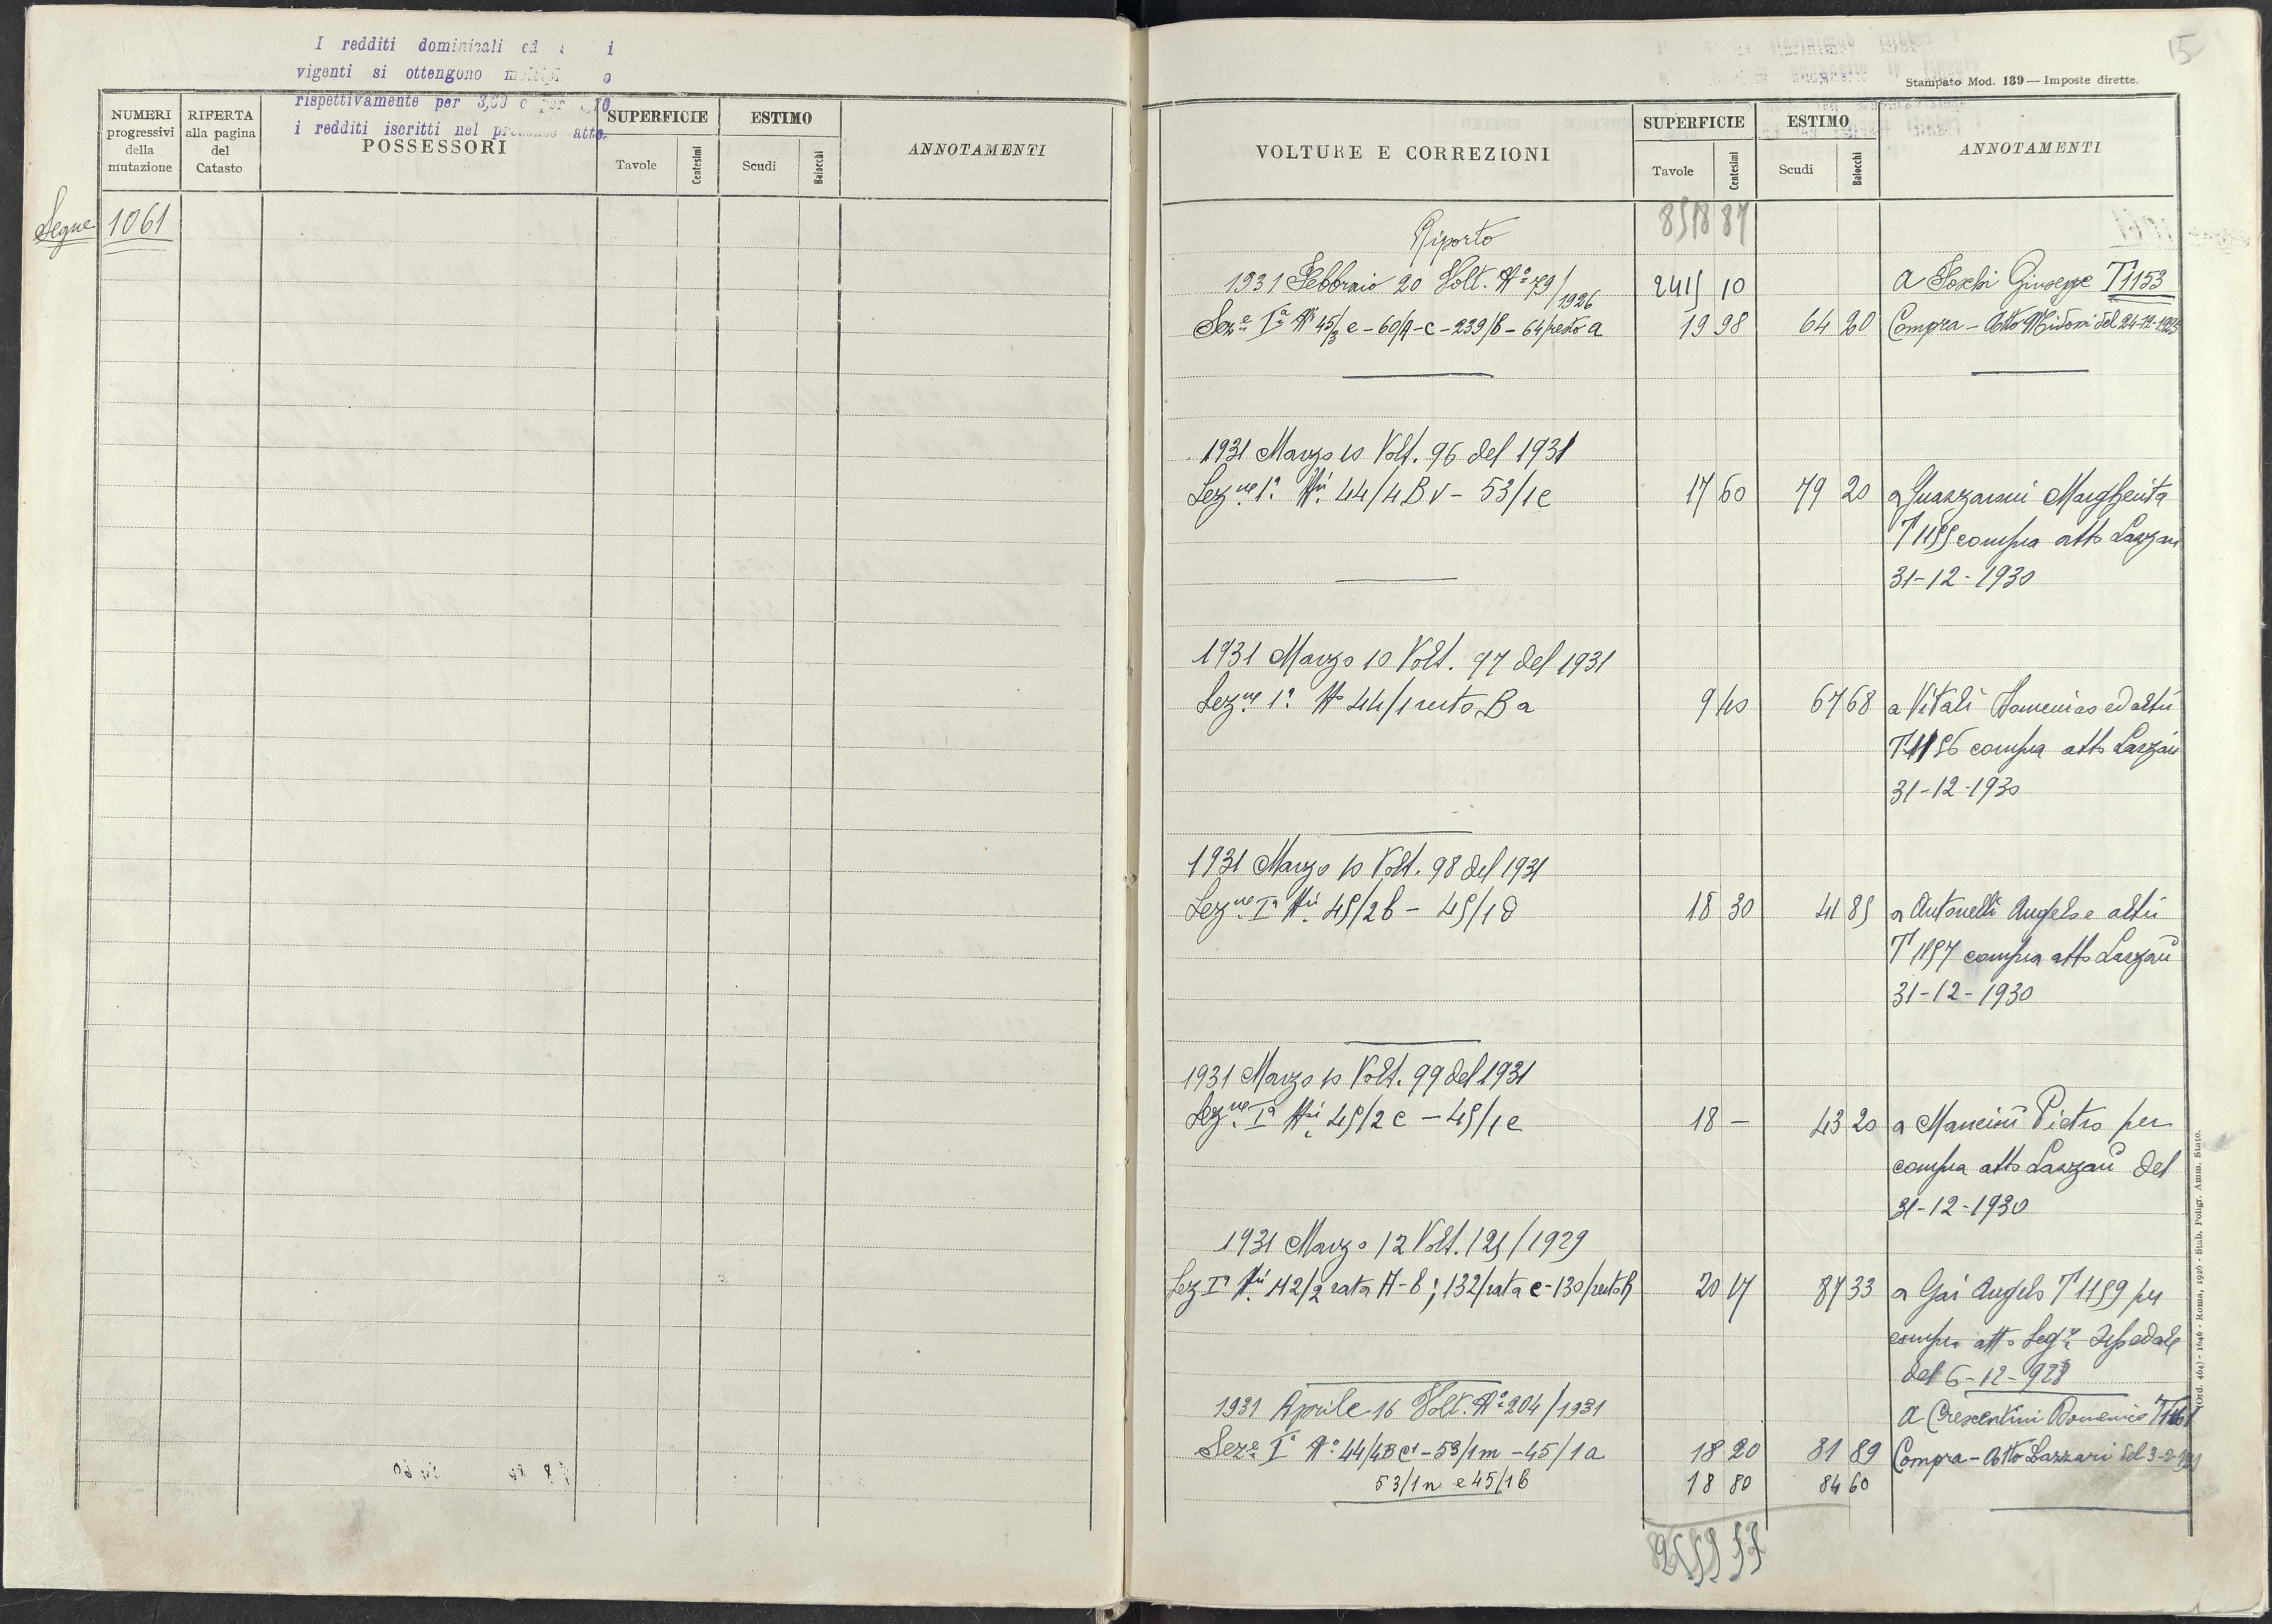 I redditi dominicali ed i
vigenti si ottengono
rispettivamente per 3,
i redditi iscritti nel atto.
NUMERI progressivi della mutazione
RIFERTA alla pagina del Catasto
POSSESSORI
SUPERFICIE
Tavole
Centesimi
ESTIMO
Scudi
Baiocchi
ANNOTAMENTI
Segue 1061
15
Stampato Mod. 139 — Imposte dirette.
VOLTURE E CORREZIONI
SUPERFICIE
Tavole
Centesimi
ESTIMO
Scudi
Baiocchi
ANNOTAMENTI
Riporto
1931 Febbraio 20 Volt. N° 79/1926 2415 10 A Foschi Giuseppe T 1153
Sez.e Ia Ni 45/3 e - 60/A - c - 239/B - 64/resto a 19 98 64 20 Compra - Atto del 24-12-1925
1931 Marzo 10 Volt. 96 del 1931
Sezne 1a Ni 44/4 B v - 53/1 e 17 60 79 20 a Guazzaroni Margherita
T 1155 compra atto Lazzari
31-12-1930
1931 Marzo 10 Volt. 97 del 1931
Sezne 1a N° 44/1 resto B a 9 40 67 68 a Vitali Domenico ed altri
T 1156 compra atto Lazzari
31-12-1930
1931 Marzo 10 Volt. 98 del 1931
Sezne Ia Ni 45/2 b - 45/1 d 18 30 41 85 a Antonelli Angelo e altri
T 1157 compra atto Lazzari
31-12-1930
1931 Marzo 10 Volt. 99 del 1931
Sezne Ia Ni 45/2 c - 45/1 e 18 — 43 20 a Mancini Pietro per
compra atto Lazzari del
31-12-1930
1931 Marzo 12 Volt. 125/1929
Sez Ia Ni 42/2 rata A - b ; 132/rata c - 130/resto b 20 17 87 33 a Gai Angelo T 1159 per
compra atto Segr.
del 6-12-928
1931 Aprile 16 Volt. N° 204/1931 A Crescentini Domenico T 1161
Sez.e Ia N° 44/4B c1 - 53/1 m - 45/1 a 18 20 81 89 Compra - Atto Lazzari del 3-2-931
53/1 n e 45/1 b 18 80 84 60
(Ord. 464) - 1646 - Roma, 1926 - Stab. Poligr. Amm. Stato.